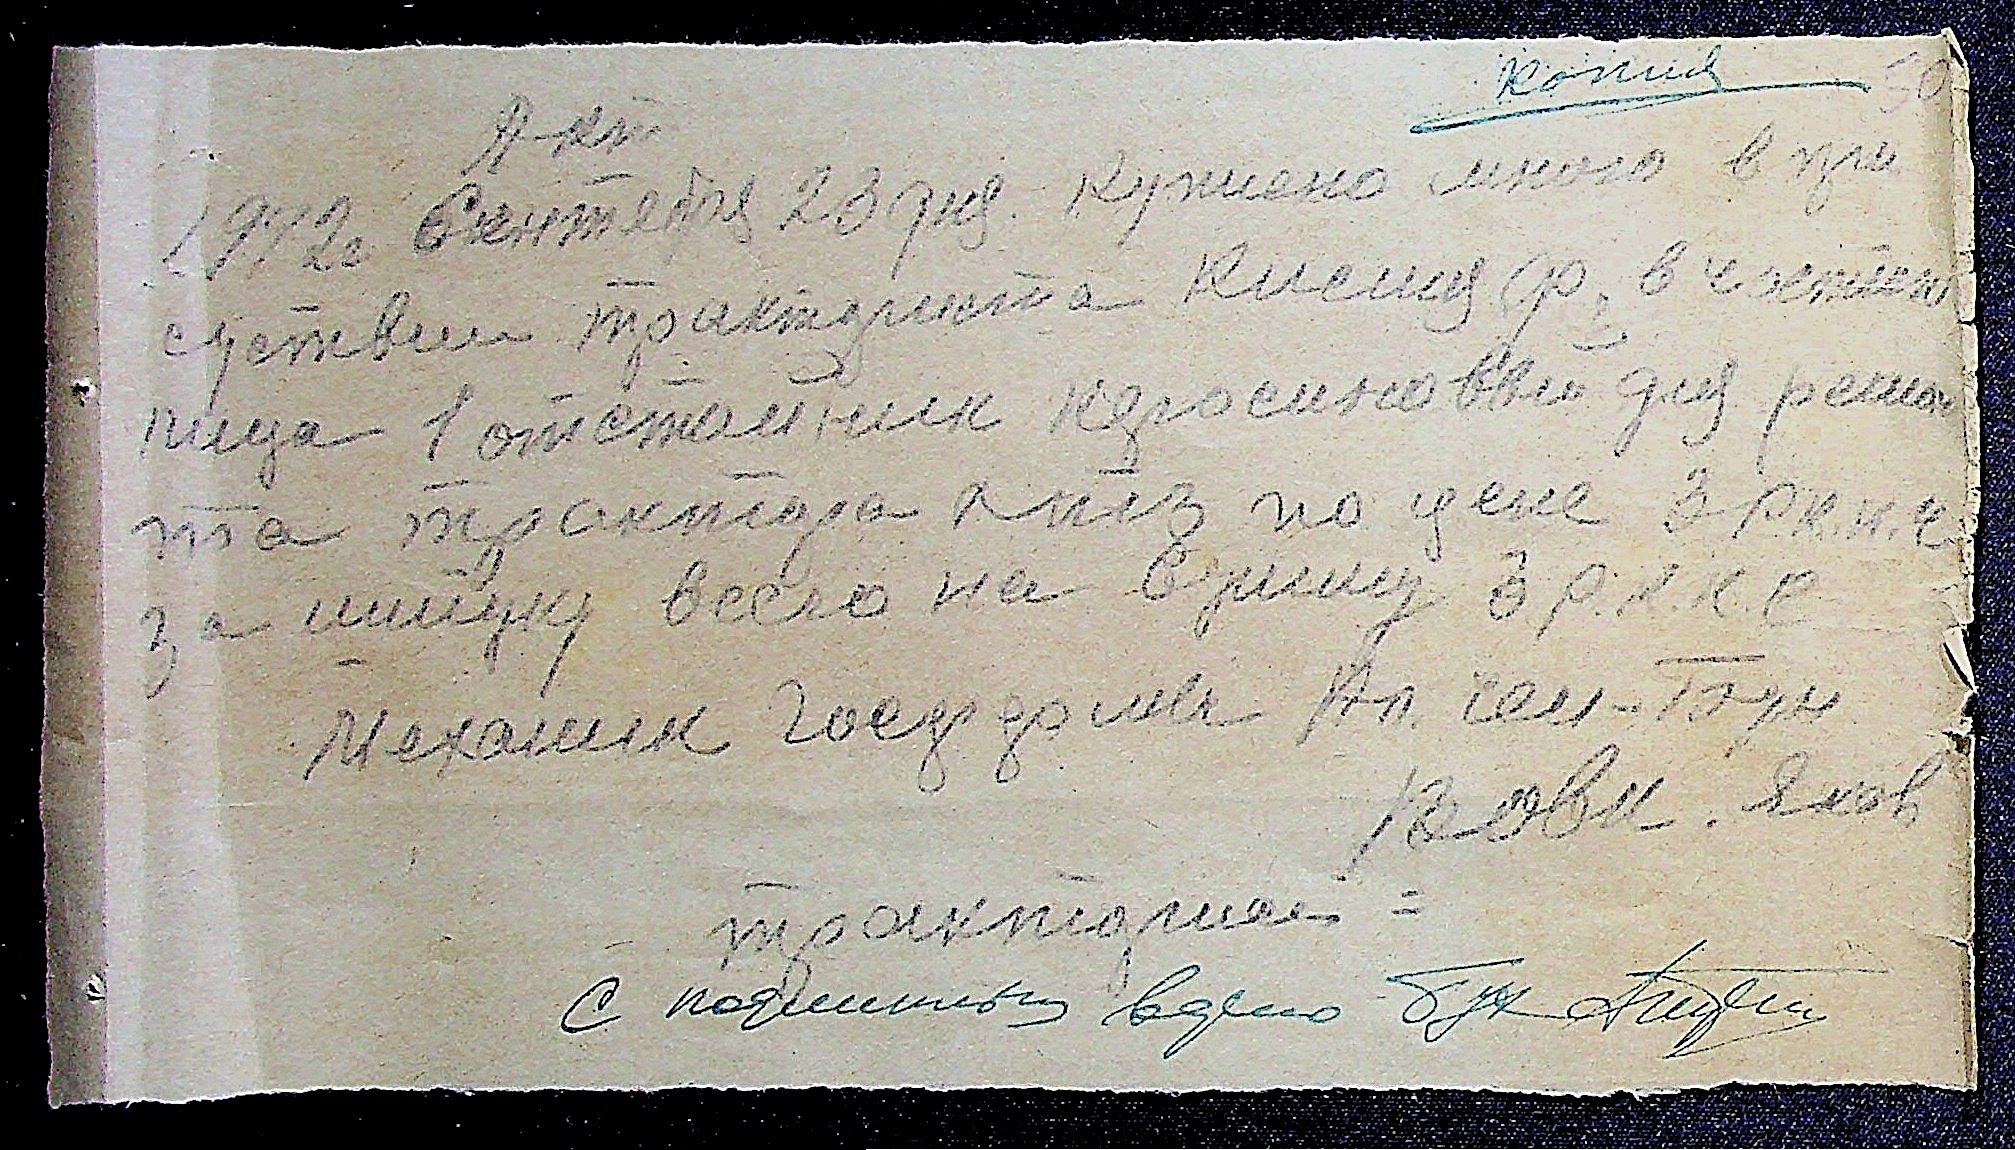 Копия 50
Акт
1942г Сентября 23 дня. Куплено мною в при
суствии тракториста Кисиля Ф. в частни
ница 1 отстойник керосиновый для ремон
та трактора ХТЗ по цене 3 р.к.н.с
за штуку всего на сумму 3 р.к.к.с
Механик Ап.
Яков
тракторист =
С подлинным верно Бух